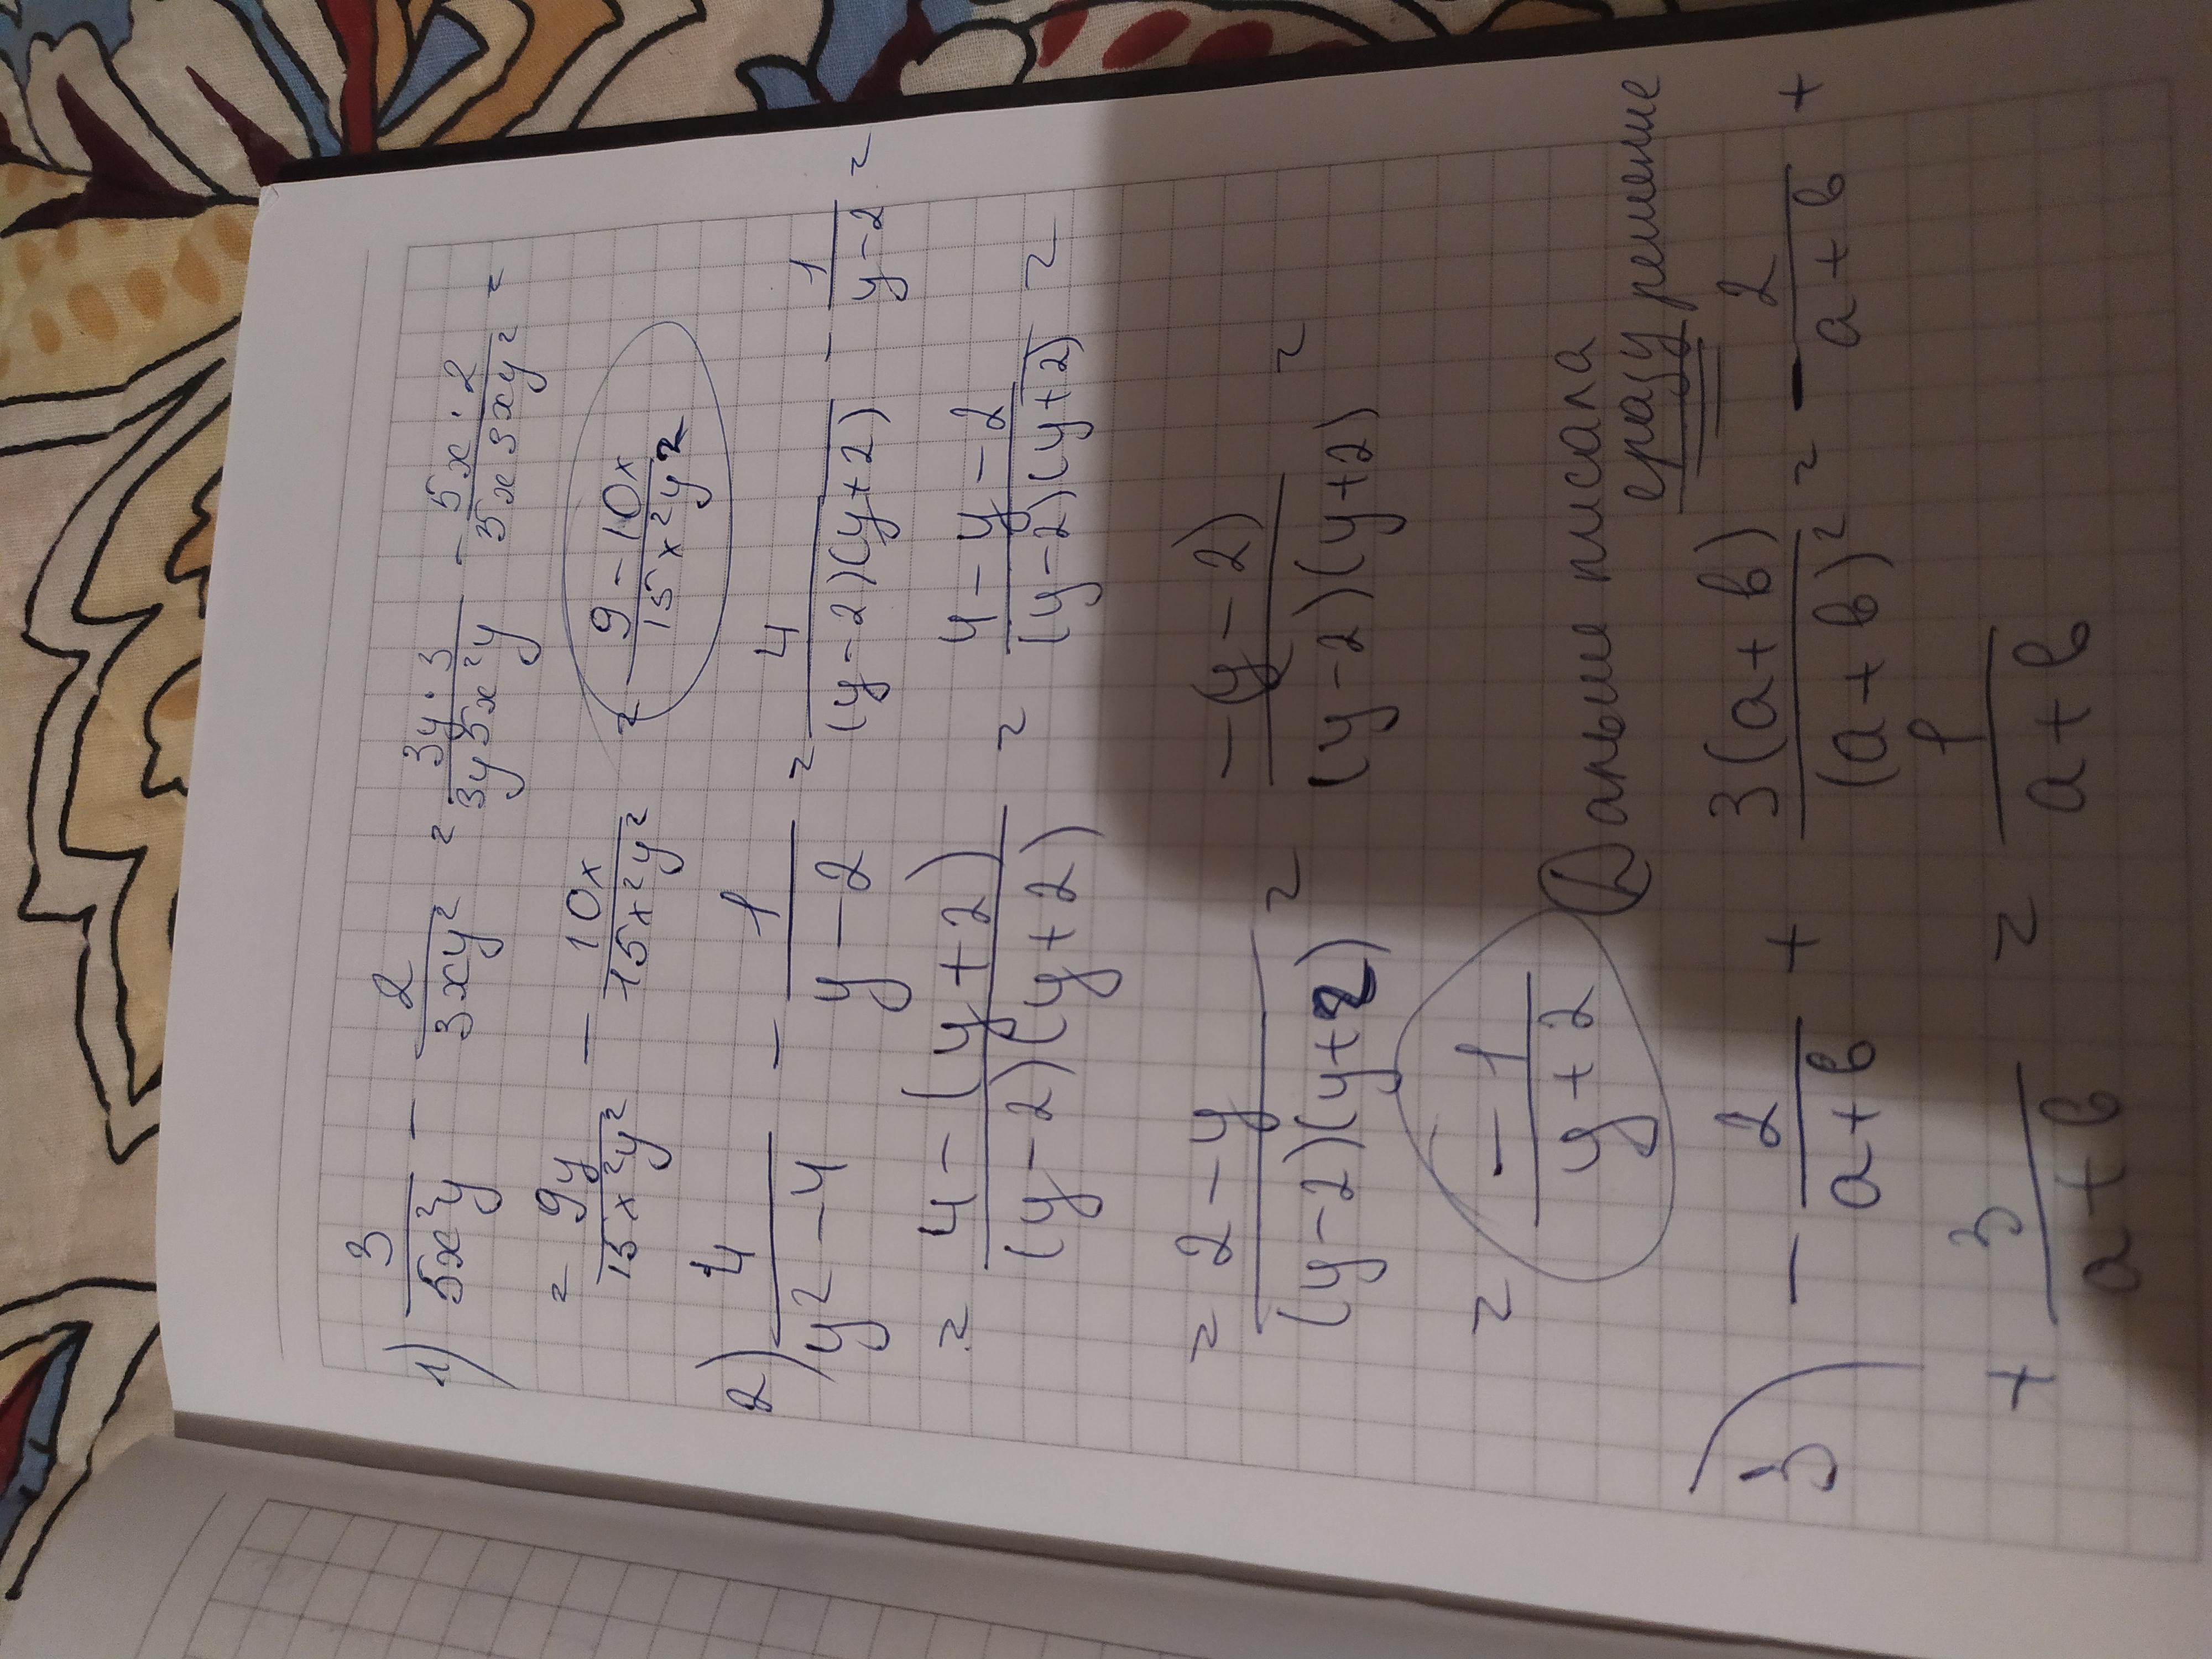 1) 3/(5x²y) - 2/(3xy²) = (3y·3)/(3y5x²y) - (5x·2)/(5x3xy²) =
= 9y/(15x²y²) - 10x/(15x²y²) = (9-10x)/(15x²y²)
2) 4/(y²-4) - 1/(y-2) = 4/((y-2)(y+2)) - 1/(y-2) =
= (4-(y+2))/((y-2)(y+2)) = (4-y-2)/((y-2)(y+2)) =
= (2-y)/((y-2)(y+2)) = (-(y-2))/((y-2)(y+2)) =
= -1/(y+2)
Дальше писала
сразу решение
3) -2/(a+b) + (3(a+b))/((a+b)²) = -2/(a+b) +
+ 3/(a+b) = 1/(a+b)